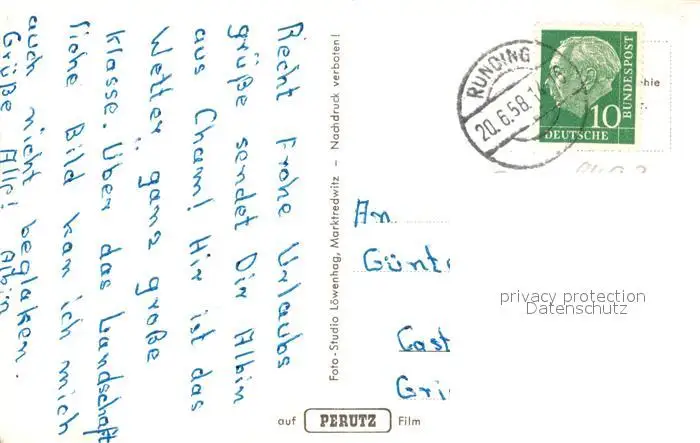 Recht Frohe Urlaubs
grüße sendet Dir Albin
aus Cham! Hir ist das
Wetter ganz große
Klasse. Über das Landschaft
liche Bild kan ich mich
auch nicht beglaken.
Grüße Alp! Albin
Foto-Studio Löwenhag, Marktredwitz – Nachdruck verboten!
auf PERUTZ Film
RUNDING
20.6.58.
10
DEUTSCHE
BUNDESPOST
An
Günt
Gast
Gri
privacy protection
Datenschutz